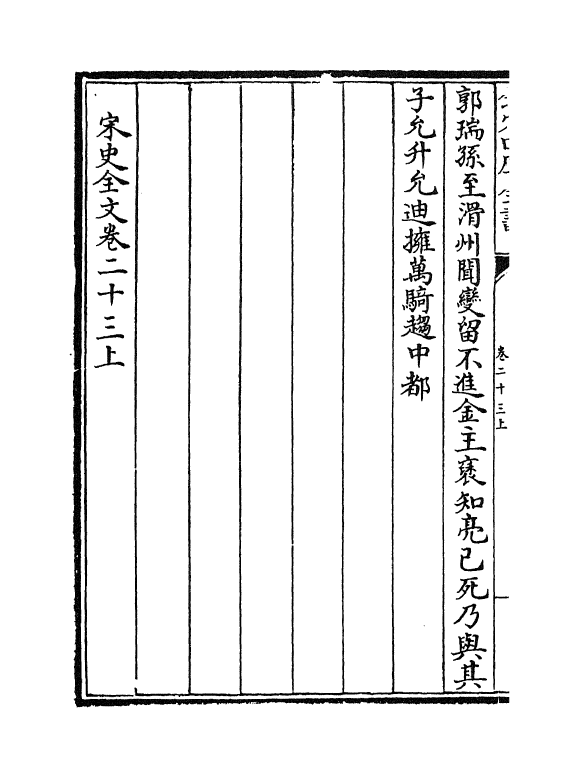 郭瑞孫至滑州聞變留不進金主裒知亮已死乃與其
子允升允迪擁萬騎趨中都
宋史全文卷二十三上
卷二十三上